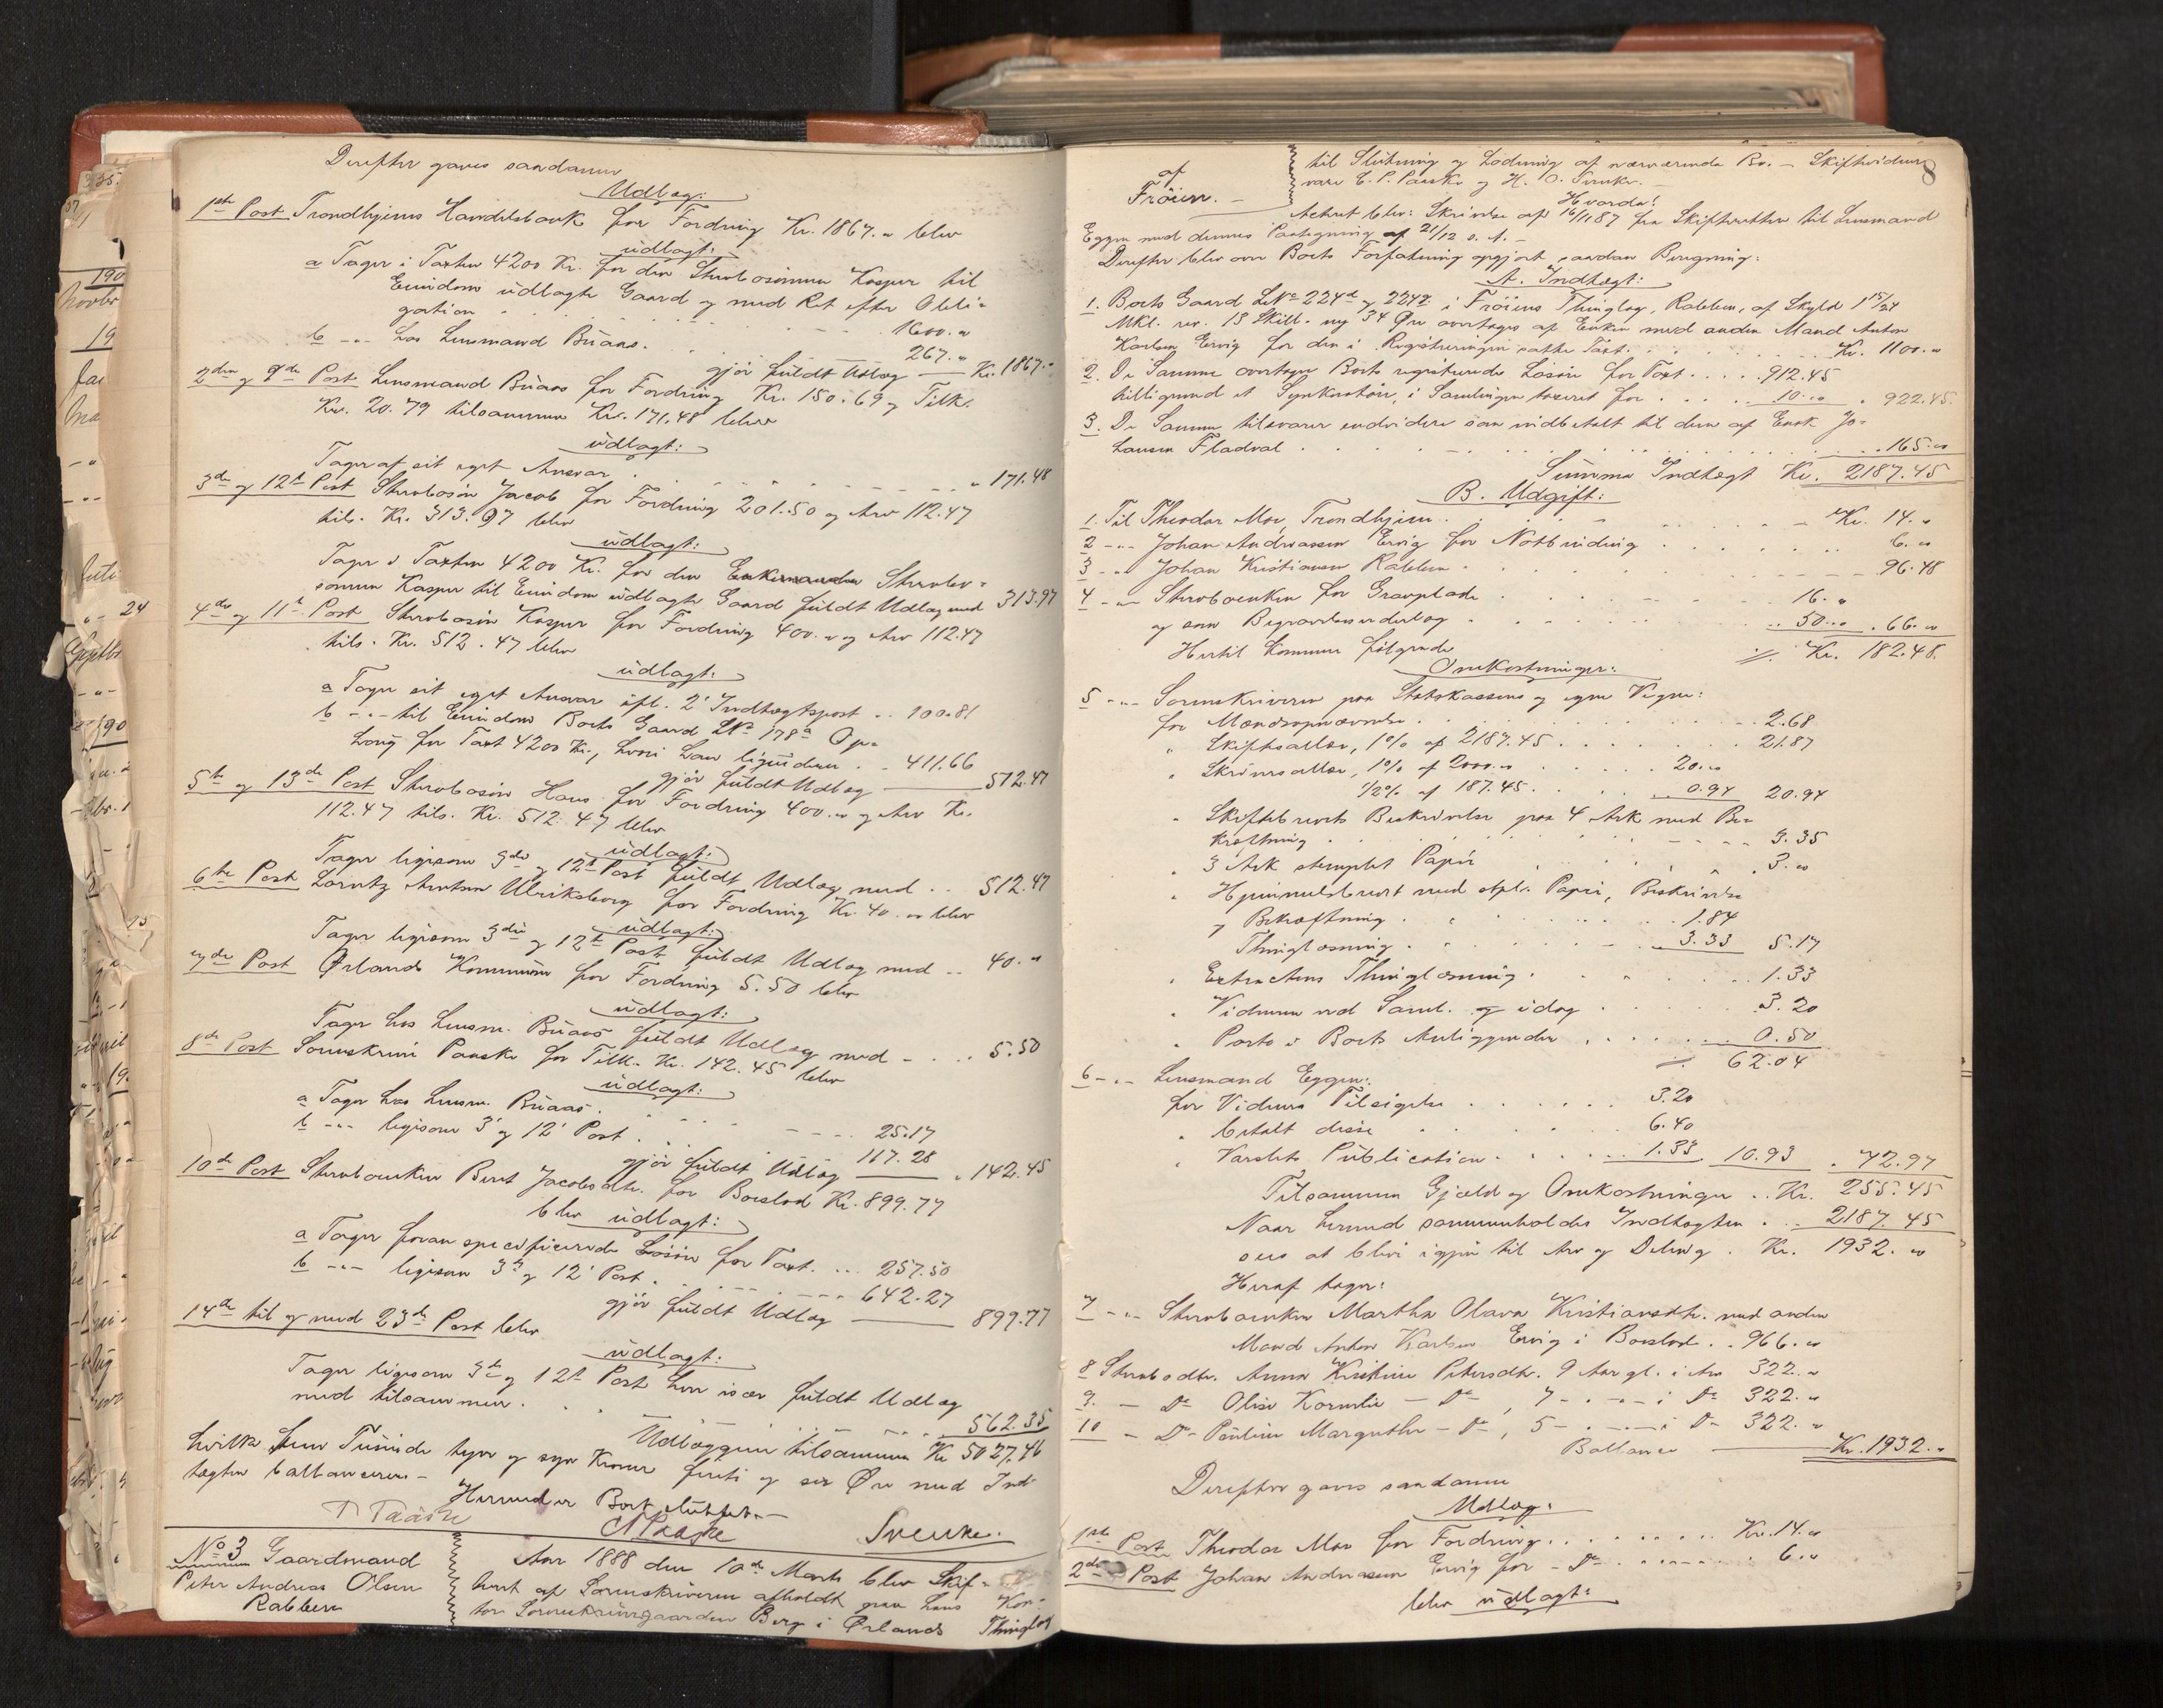 Derefter gaves saadanne
Udlæg:
1ste Post Trondhjems Handelsbank for Fordring Kr. 1867.00 blev
udlagt:
a Tager i Taxten 4200 Kr. for den Stervbosønnen Kasper til
Eiendom udlagte Gaard og med Ret efter Obli-
gation 1600.00
b -"- hos Lensmand Buaas. 267.00
gjør fuldt Udlæg Kr. 1867.00
2den og 9de Post Lensmand Buaas for Fordring Kr. 150.69 og Tilk.
Kr. 20.79 tilsammen Kr. 171.48 blev
udlagt:
Tager af sit eget Ansvar " 171.48
3de og 12te Post Stervbosøn Jacob for Fordring 201.50 og Arv 112.47
tils. Kr. 313.97 blev
udlagt:
Tager i Taxten 4200 Kr. for den Enkemanden Stervbo-
sønnen Kasper til Eiendom udlagte Gaard fuldt Udlæg med 313.97
4de og 11te Post Stervbosøn Kasper for Fordring 400.00 og Arv 112.47
tils. Kr. 512.47 blev
udlagt:
a Tager sit eget Ansvar ifl. 2' Indtægtspost .. 100.81
b -"- til Eiendom Boets Gaard LNo 178a Op-
houg for Taxt 4200 Kr., hvori han liqviderer .. 411.66
gjør fuldt Udlæg 512.47
5te og 13de Post Stervbosøn Hans for Fordring 400.00 og Arv Kr.
112.47 tils. Kr. 512.47 blev
udlagt:
Tager ligesom 3de og 12te Post fuldt Udlæg med .. 512.47
6te Post Lorntz Arntsen Ulriksborg for Fordring Kr. 40.00 blev
udlagt:
Tager ligesom 3die og 12te Post fuldt Udlæg med .. 40.00
7de Post Ørlands Kommune for Fordring 5.50 blev
udlagt:
Tager hos Lensm. Buaas fuldt Udlæg med 5.50
8de Post Sorenskriver Paaske for Tilk. Kr. 142.45 blev
udlagt:
a Tager hos Lensm. Buaas. 25.17
b -"- ligesom 3' og 12' Post. 117.28
gjør fuldt Udlæg " 142.45
10de Post Stervboenken Beret Jacobsdtr. for Boeslod Kr. 899.77
blev udlagt:
a Tager foran specificerede Løsøre for Taxt. 257.50
b -"- ligesom 3' og 12' Post. 642.27
gjør fuldt Udlæg 899.77
14de til og med 23de Post blev
udlagt:
Tager ligesom 3de og 12te Post hver især fuldt Udlæg
med tilsammen. 562.35
Udlæggene tilsammen Kr 5027.46
hvilke fem Tusinde tyve og syv Kroner firti og sex Øre med Ind-
tægten ballancerer.-
Hermed er Boet sluttet.-
Paaske Svenke.
No 3 Gaardmand
Peter Andreas Olsen
Rabben
Aar 1888 den 10de Marts blev Skif-
teret af Sorenskriveren afholdt paa hans Kon-
tor Sorenskrivergaarden Berg i Ørlands Thinglag
8
af
Frøien.
til Slutning og Lodning af nærværende Bo. - Skiftevidner
vare C. P. Paaske og H. O. Svenke.-
Hvorda:
Acteret blev: Skrivelse af 16/11 87 fra Skifteretten til Lensmand
Eggen med dennes Paategning af 21/12 s. A. -
Derefter blev over Boets Forfatning opgjort saadan Beregning:
A. Indtægt:
1. Boets Gaard LNo 224d og 2242 i Frøiens Thinglag, Rabben, af Skyld 1 15/24
Mkl. rev. 13 Skill. ny 34 Øre overtages af Enken med anden Mand Anton
Karlsen Ervig for den i Registreringen satte Taxt. Kr. 1100.00
2. De Samme overtager Boets registrerede Løsøre for Taxt 912.45
tilligemed et Synkenotsør, i Samlingen taxeret for 10.00 " 922.45.
3. De Samme tilsvarer endvidere som indbetalt til dem af Enok Jo-
hansen Fladval 165.00
Summa Indtægt Kr. 2187.45
B. Udgift:
1. Til Theodor Moe, Trondhjem. Kr. 14.00
2 -"- Johan Andreassen Ervig for Notbinding 6.00
3 -"- Johan Kristiansen Rabben 96.48
4 -"- Stervboenken for Gravplade 16.00
og som Begravelsesudlæg 50.00 " 66.00
Hertil kommer følgende Kr. 182.48.
Omkostninger:
5 -"- Sorenskriveren paa Statskassens og egne Vegne:
for Mændsopnævnelse 2.68
" Skiftesallær, 1% af 2187.45 21.87
" Skriversallær, 1% af 2000.00 20.00
1/2% af 187.45. 0.94 20.94
" Skiftebrevets Beskrivelse paa 4 Ark med Be-
kræftning 3.35
" 3 Ark stemplet Papir 3.00
" Hjemmelsbrevet med stpl. Papir, Beskrivelse
og Bekræftning 1.84
Thinglæsning 3.33 5.17
" Extractens Thinglæsning 1.33
" Vidnerne ved Saml. og idag 3.20
" Porto i Boets Anliggender 0.50
62.04
6 -"- Lensmand Eggen:
for Vidners Tilsigelse 3.20
" betalt disse 6.40
" Varslets Publication 1.33 10.93 " 72.97
Tilsammen Gjæld og Omkostninger .. Kr. 255.45
Naar hermed sammenholdes Indtægten 2187.45
sees at blive igjen til Arv og Deling. Kr. 1932.00
Heraf tager:
7 -"- Stervboenken Martha Olava Kristiansdtr. med anden
Mand Anton Karlsen Ervig i Boeslod. 966.00
8 Stervbodtr. Anna Kristine Petersdtr. 9 Aar gl. i Arv 322.00
9. - Do Olise Kornelie - Do, 7 - " - i Do 322.00
10 - Do Pauline Margrethe - Do, 5 - " - i Do 322.00
Ballance Kr. 1932.00
Derefter gaves saadanne
Udlæg:
1ste Post Theodor Moe for Fordring Kr. 14.00
2de Post Johan Andreassen Ervig for - Do 6.00
blev udlagt: